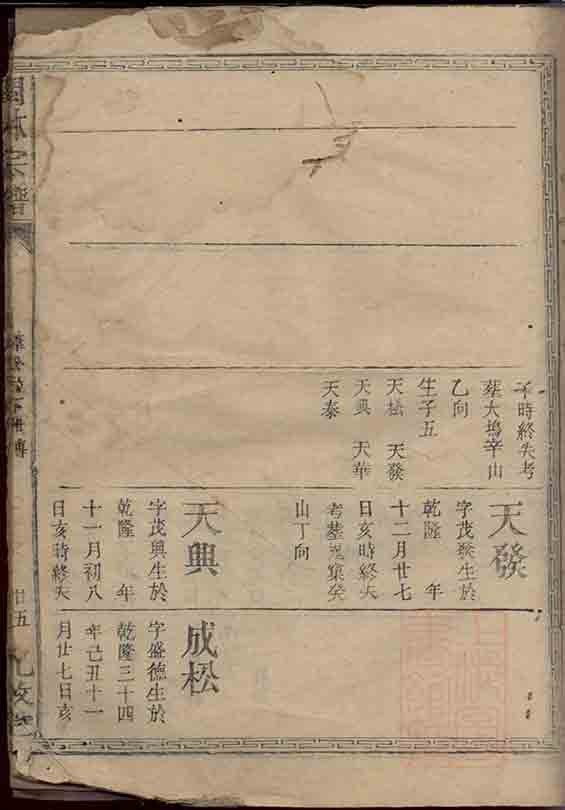 子時終失考
葬大塢辛山
乙向
生子五
天松 天發
天興 天華
天泰
天發
字茂發生於
乾隆 年
十二月廿七
日亥時終失
考墓
山丁向
天興
字茂興生於
乾隆 年
十一月初八
日亥時終失
成松
字盛德生於
乾隆三十四
年己丑十一
月廿七日亥
宗譜
廿五